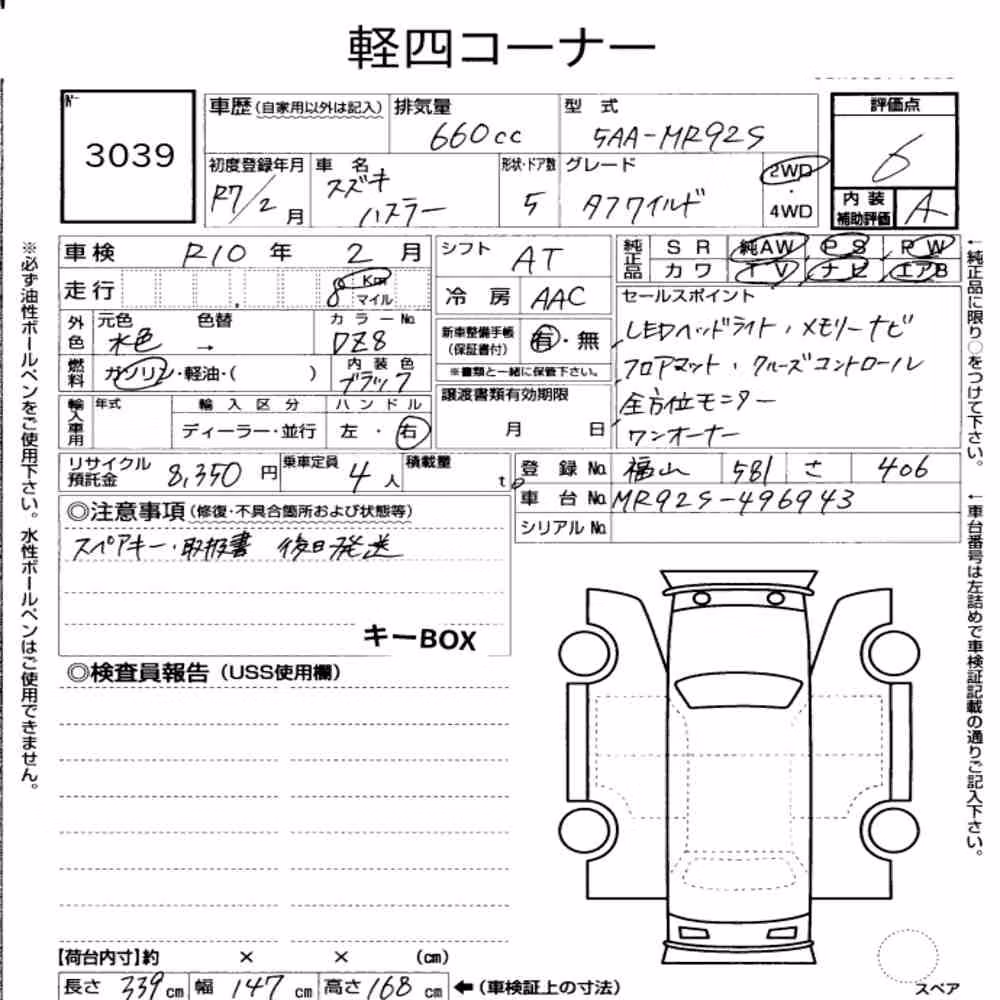 軽四コーナー
3039
車歴(自家用以外は記入)
排気量
660cc
型 式
5AA-MR92S
評価点
6
内装補助評価
A
初度登録年月
R7/2月
車 名
スズキ
ハスラー
形状・ドア数
5
グレード
タフワイルド
2WD
・
4WD
車検 R10年 2月
走行 8 Km
マイル
シフト AT
冷 房 AAC
純正品
SR 純AW PS PW
カワ TV ナビ エアB
外色
元色 色替 カラーNo
水色 → DZ8
燃料
ガソリン・軽油・( )
内装色
ブラック
新車整備手帳
(保証書付)
有・無
※書類と一緒に保管下さい。
譲渡書類有効期限
月 日
セールスポイント
LEDヘッドライト・メモリーナビ
フロアマット・クルーズコントロール
全方位モニター
ワンオーナー
輸入車用
年式 輸入区分 ハンドル
ディーラー・並行 左・右
リサイクル預託金 8,350円
乗車定員 4人
積載量 t
登録No. 福山 581 さ 406
車台No. MR92S-496943
シリアルNo.
◎注意事項(修復・不具合箇所および状態等)
スペアキー・取扱書 後日発送
キーBOX
◎検査員報告(USS使用欄)
【荷台内寸】約 × × (cm)
長さ 339cm 幅 147cm 高さ 168cm ←(車検証上の寸法)
スペア
※必ず油性ボールペンをご使用下さい。水性ボールペンはご使用できません。
←純正品に限り○をつけて下さい。
←車台番号は左詰めで車検証記載の通りご記入下さい。